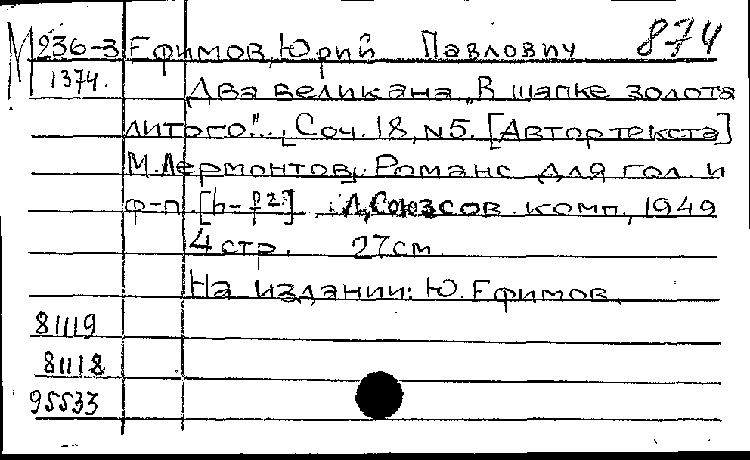 М 236-3 Ефимов, Юрий Павлович 874
1374. Два великана „В шапке золота
литого"... Соч. 18, N5. [Автор текста]
М. Лермонтов. Романс для гол. и
ф-п. [h-f²] Л, Союз сов. комп., 1949
4 стр. 27 см.
На издании: Ю. Ефимов.
81119
81118
95533